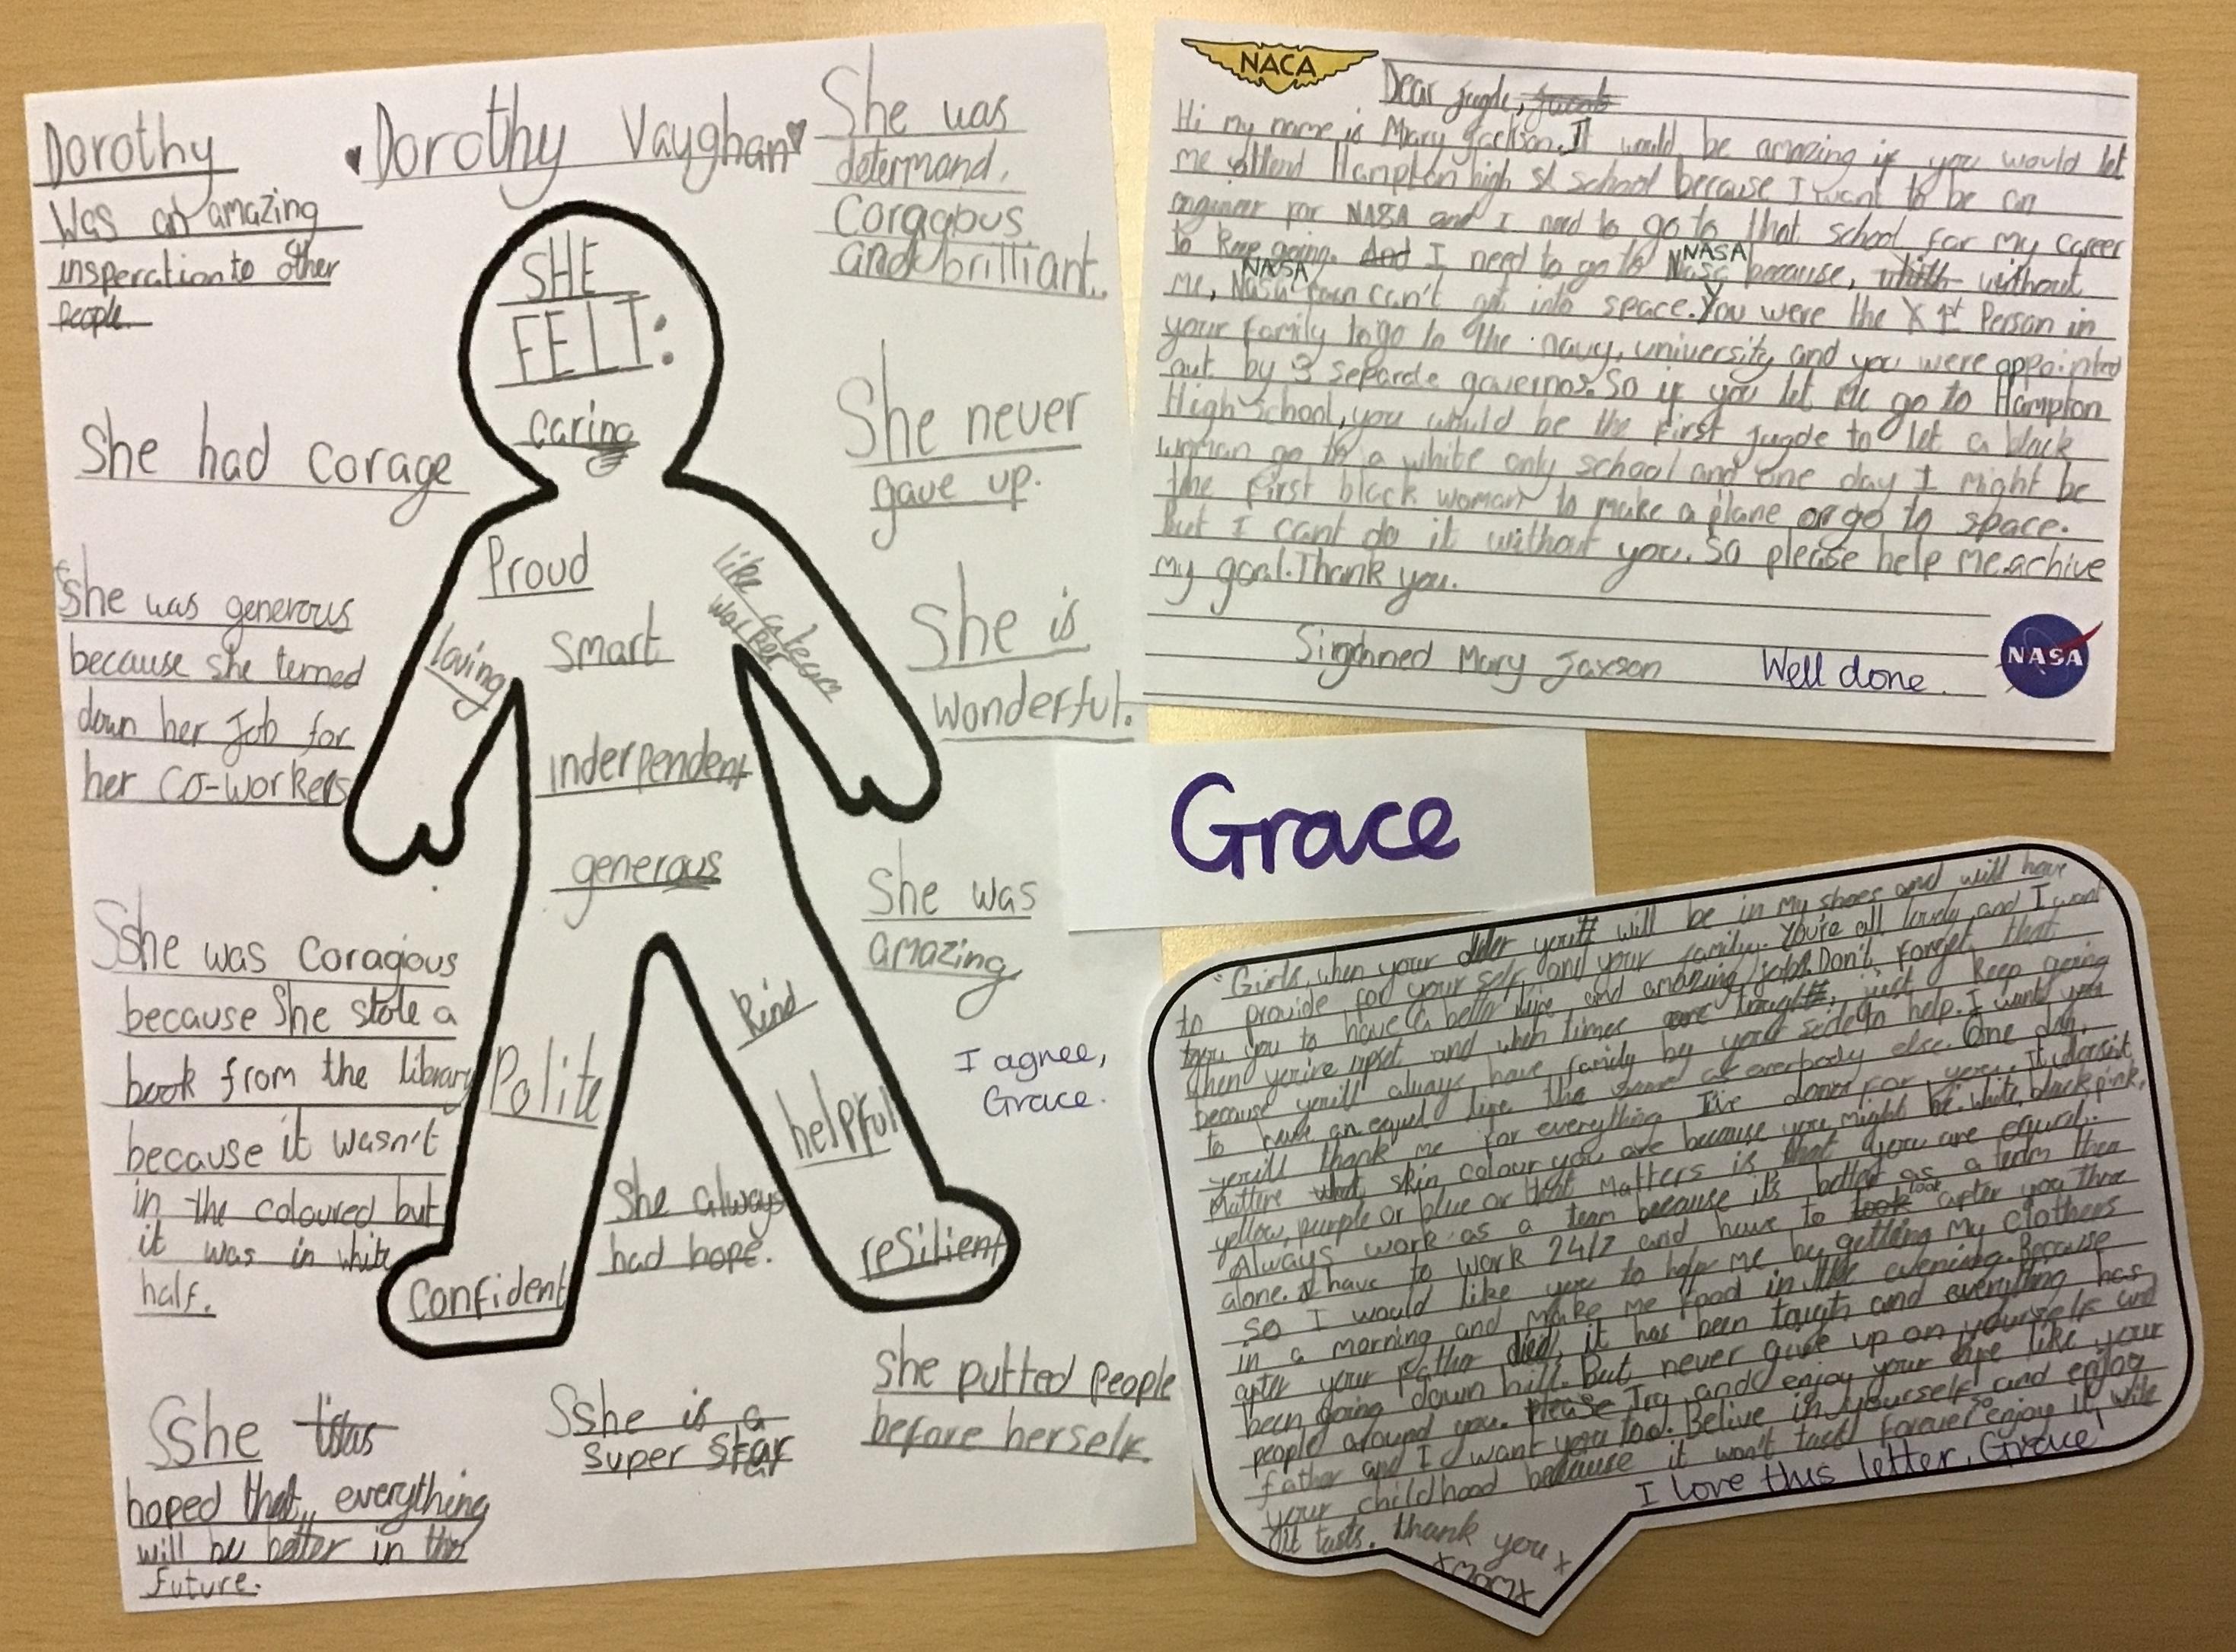 Dorothy
Was an amazing
insperation to other
people.
Dorothy Vaughan
She was
determand,
Coragabus
and brilliant.
She had corage
She never
gave up.
She was generous
because she terned
down her job for
her co-workers
She is
wonderful.
Sshe was coragious
because she stole a
book from the library
because it wasn't
in the coloured but
it was in white
half.
She was
amazing
I agree,
Grace.
SHE
FELT:
caring
Proud
like a team
worker
loving
smart
inderpendent
generous
kind
Polite
helpful
She always
had hope.
Confident
resilient
Sshe
hoped that, everything
will be better in the
future.
Sshe is a
super star
She putted people
before herself.
NACA
Dear jugde,
Hi my name is Mary Jackson. It would be amazing if you would let
me attend Hampton high school because I want to be an
engineer for NASA and I need to go to that school for my career
to keep going. And I need to go to NASA because, without
me, NASA can't get into space. You were the 1st Person in
your family to go to the navy, university and you were appointed
out by 3 separate governos. So if you let me go to Hampton
High school, you would be the first jugde to let a black
woman go to a white only school and one day I might be
the first black woman to make a plane or go to space.
But I cant do it without you. So please help me achive
my goal. Thank you.
Singhned Mary Jaxson
Well done.
NASA
Grace
"Girls, when your older you will be in my shoes and will have
to provide for your self and your family. You're all lovely and I want
you to have a better life and amazing jobs. Don't forget that
when you're upset and when times are tough, just keep going
because you'll always have family by your side to help. I want you
to have an equel life the same as everbody else. One day,
you'll thank me for everything I've doner for you. It doesn't
matters what skin colour you are because you might be white, black, pink,
yellow, purple or blue or that matters is that you are equal.
Always work as a team because it's better as a team then
alone. I have to work 24/7 and have to look after you three
so I would like you to help me by getting my clothers
in a morning and make me food in the evening. Because
after your father died, it has been tough and everything has
been going down hill. But never give up on yourself and
people around you. please Try and enjoy your life like your
father and I want you too. Belive in yourself and enjoy
your childhood because it won't last forever so enjoy it while
it lasts. Thank you x
x MOM x
I love this letter, Grace!